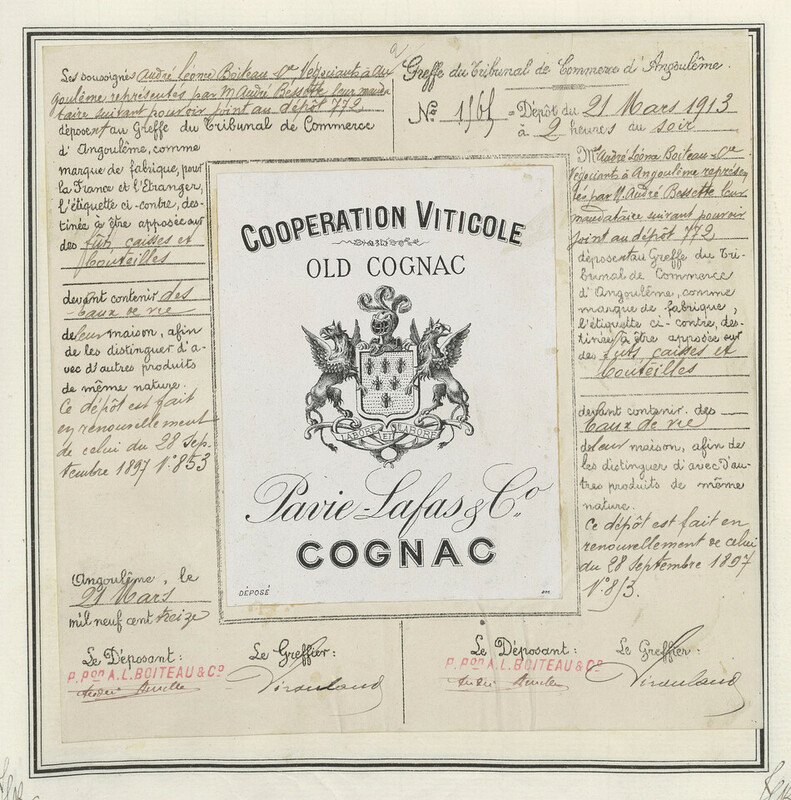 Les soussignés André Léôme Boiteau & Cie, Négociants à An
goulême, représentés par M. André Bessette leur manda
taire suivant pouvoir joint au dépôt 772
déposent au Greffe du Tribunal de Commerce
d'Angoulême, comme
marque de fabrique, pour
la France et l'Etranger,
l'étiquette ci-contre, des-
tinée à être apposée sur
des fûts, caisses et
bouteilles
devant contenir des
Eaux de vie
de leur maison, afin
de les distinguer d'a-
vec d'autres produits
de même nature.
Ce dépôt est fait
en renouvellement
de celui du 28 Sep-
tembre 1897 N° 853
Angoulême, le
21 Mars
mil neuf cent treize
Le Déposant:
P. PON A.L. BOITEAU & CO
Le Greffier:
COOPERATION VITICOLE
OLD COGNAC
LABORE ET LABORE
Pavie-Lafas & Co.
COGNAC
DÉPOSÉ
Greffe du Tribunal de Commerce d'Angoulême.
No 1565 = Dépôt du 21 Mars 1913
à 2 heures au soir
Mr. André Léôme Boiteau & Cie
Négociants à Angoulême représen
tés par M. André Bessette leur
mandataire suivant pouvoir
joint au dépôt 772
déposent au Greffe du Tri-
bunal de Commerce
d'Angoulême, comme
marque de fabrique,
l'étiquette ci-contre, des-
tinée à être apposée sur
des fûts, caisses et
bouteilles
devant contenir des
Eaux de vie
de leur maison, afin de
les distinguer d'avec d'au-
tres produits de même
nature.
Ce dépôt est fait en
renouvellement de celui
du 28 Septembre 1897
N° 853.
Le Déposant:
P. PON A.L. BOITEAU & CO
Le Greffier: